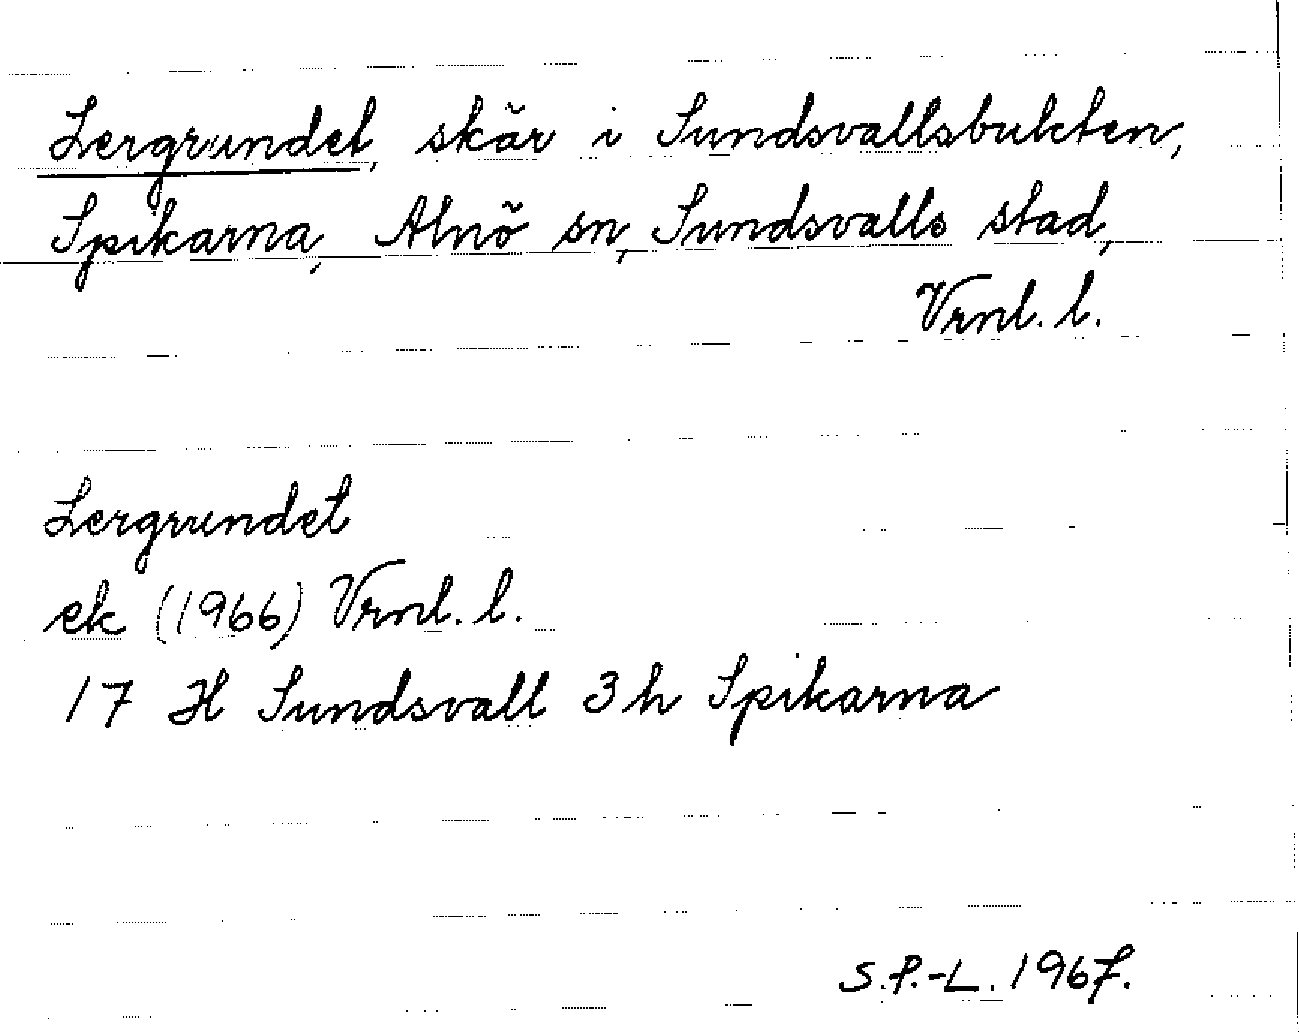 Lergrundet, skär i Sundsvallsbukten,
Spikarna, Alnö sn, Sundsvalls stad,
Vrnl. l.
Lergrundet
ek (1966) Vrnl. l.
17 H Sundsvall 3 h Spikarna
S.P.-L. 1967.